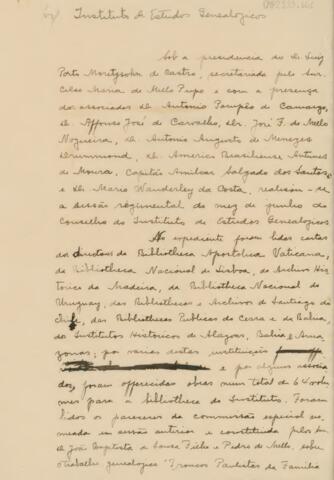 Instituto de Estudos Genealogicos
Sob a presidencia do dr. Luiz
Porto Moretzsohn de Castro, secretariada pelo snr.
Celso Maria de Mello Pupo e com a presença
dos associados dr. Antonio Pompêo de Camargo,
dr. Affonso José de Carvalho, dr. José F. de Mello
Nogueira, dr. Antonio Augusto de Menezes
Drummond, dr. Americo Brasiliense Antunes
de Moura, Capitão Amilcar Salgado dos Santos
e dr. Mario Wanderley da Costa, realisou-se
a sessão regimental do mez de junho do
Conselho do Instituto de Estudos Genealogicos
No expediente foram lidas cartas
do director da Bibliotheca Apostolica Vaticana,
da Bibliotheca Nacional de Lisboa, do Archivo His-
torico da Madeira, da Bibliotheca Nacional do
Uruguay, das Bibliothecas e Archivos de Santiago do
Chile, das Bibliothecas Publicas do Ceara e da Bahia,
do Institutos Historicos de Alagoas, Bahia e Ama-
zonas; por varias destas instituições
e por alguns associa-
dos, foram offerecidas obras num total de 64 volu-
mes para a bibliotheca do Instituto. Foram
lidos os pareceres da commissão especial no-
meada em sessão anterior e constituida pelos
dr. João Baptista de Sousa Filho e Pedro de Mello, sobre
o trabalho genealogico "Troncos Paulistas da Familia